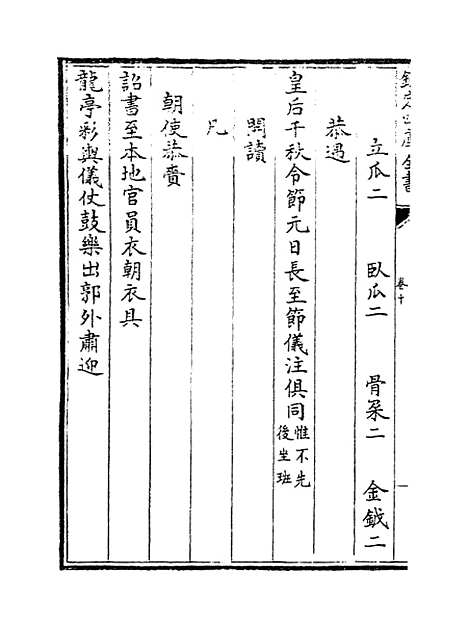 欽定四庫全書
卷十
立瓜二　臥瓜二　骨朶二　金鉞二
恭遇
皇后千秋令節元日長至節儀注俱同惟不先後坐班
開讀
凡
朝使恭賫
詔書至本地官員衣朝衣具
龍亭彩輿儀仗鼓樂出郭外肅迎